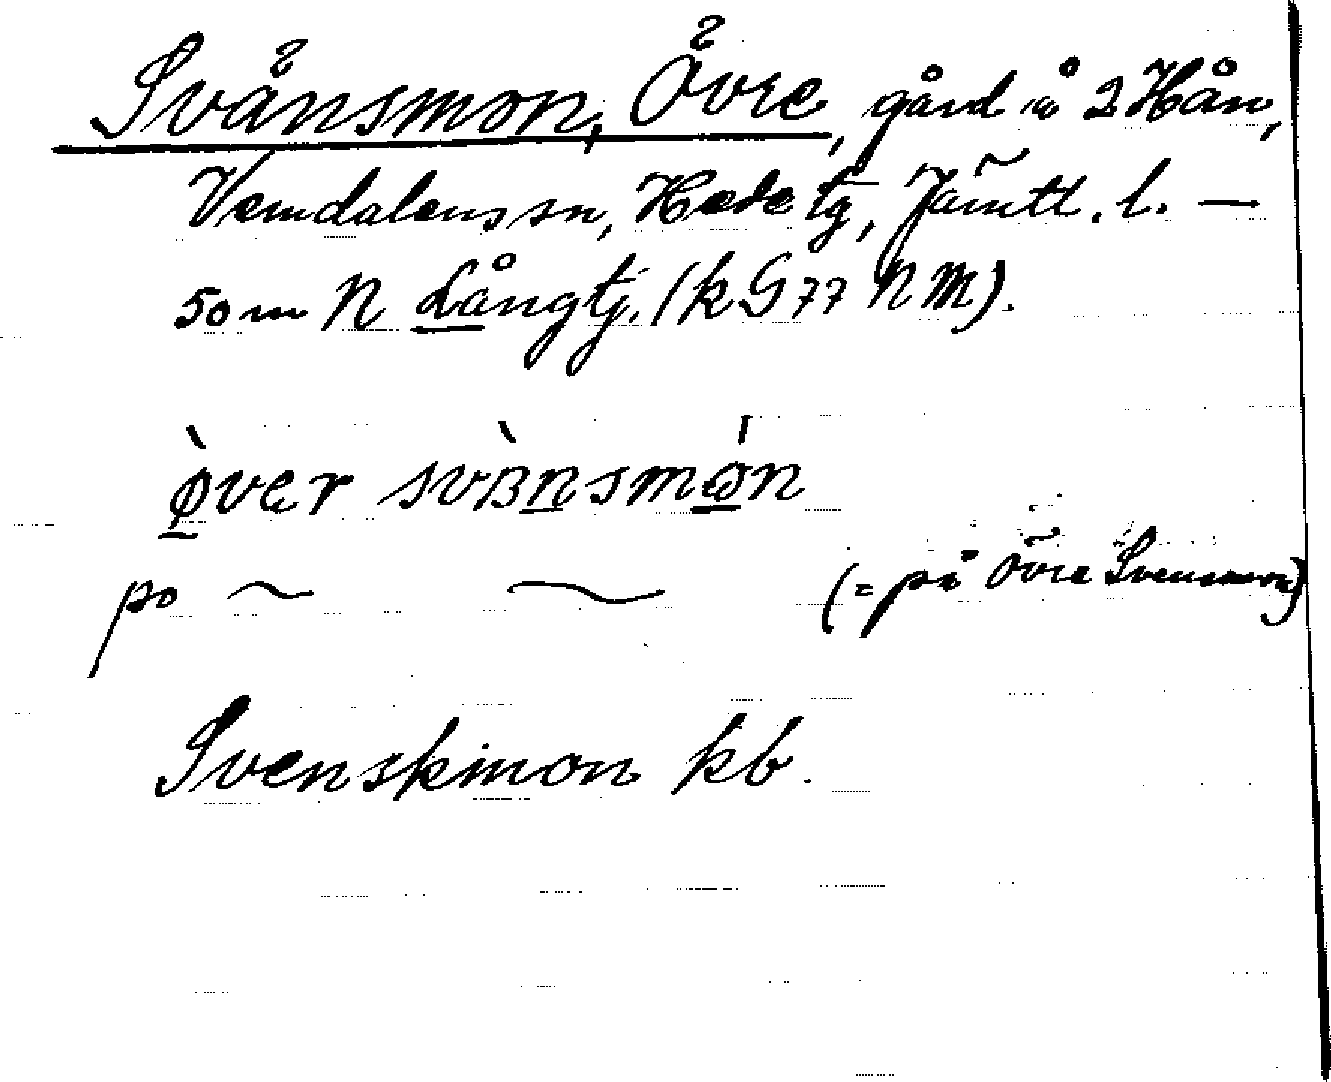 Svånsmon, Övre, gård å 2 Hån,
Vemdalens sn, Hede tg, Jämtl. l. —
50 m N Långtj. (k G 77 N M).
ø̀ver svànsmøn
po ~ ~ (= på Övre Svensmon)
Svenskmon kb.